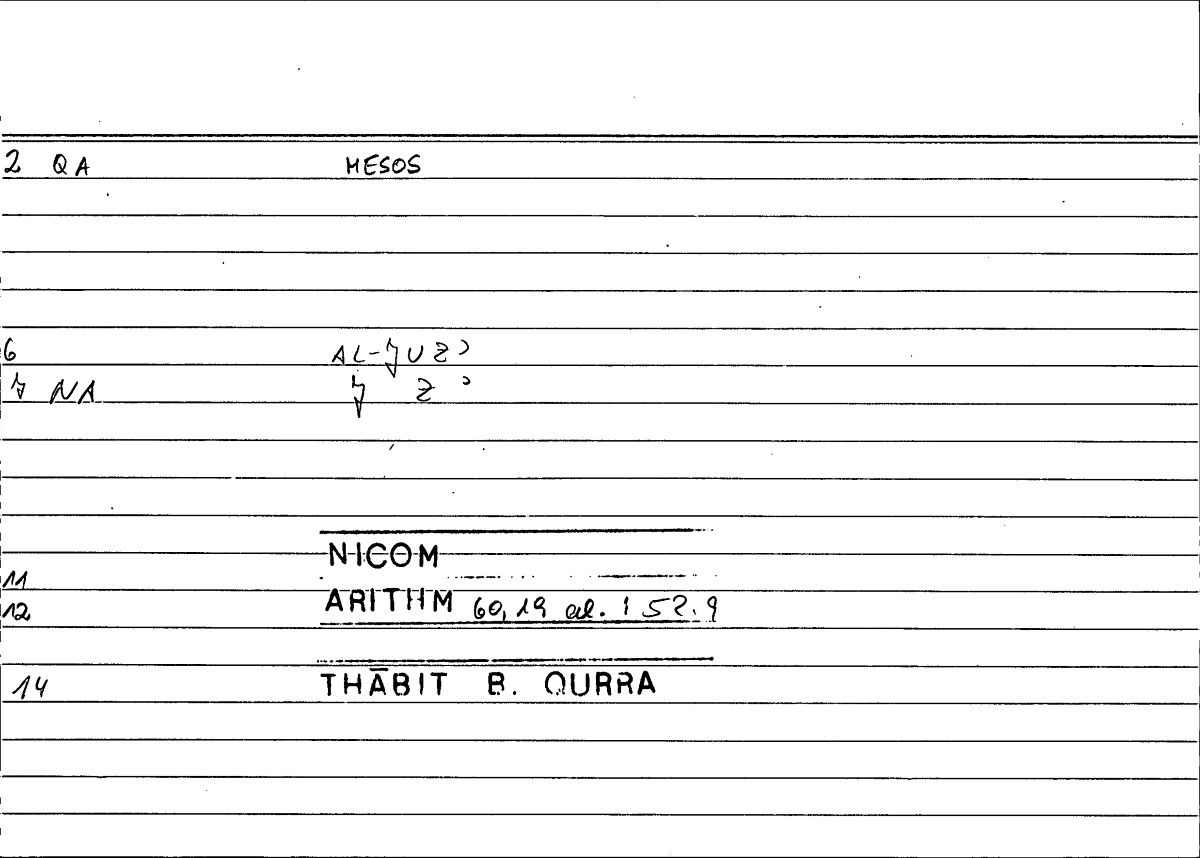 2 QA MESOS
6 AL-JUZʾ
7 NA J Z ʾ
NICOM
11
12 ARITHM 60,19 al. : 52.9
14 THĀBIT B. QURRA